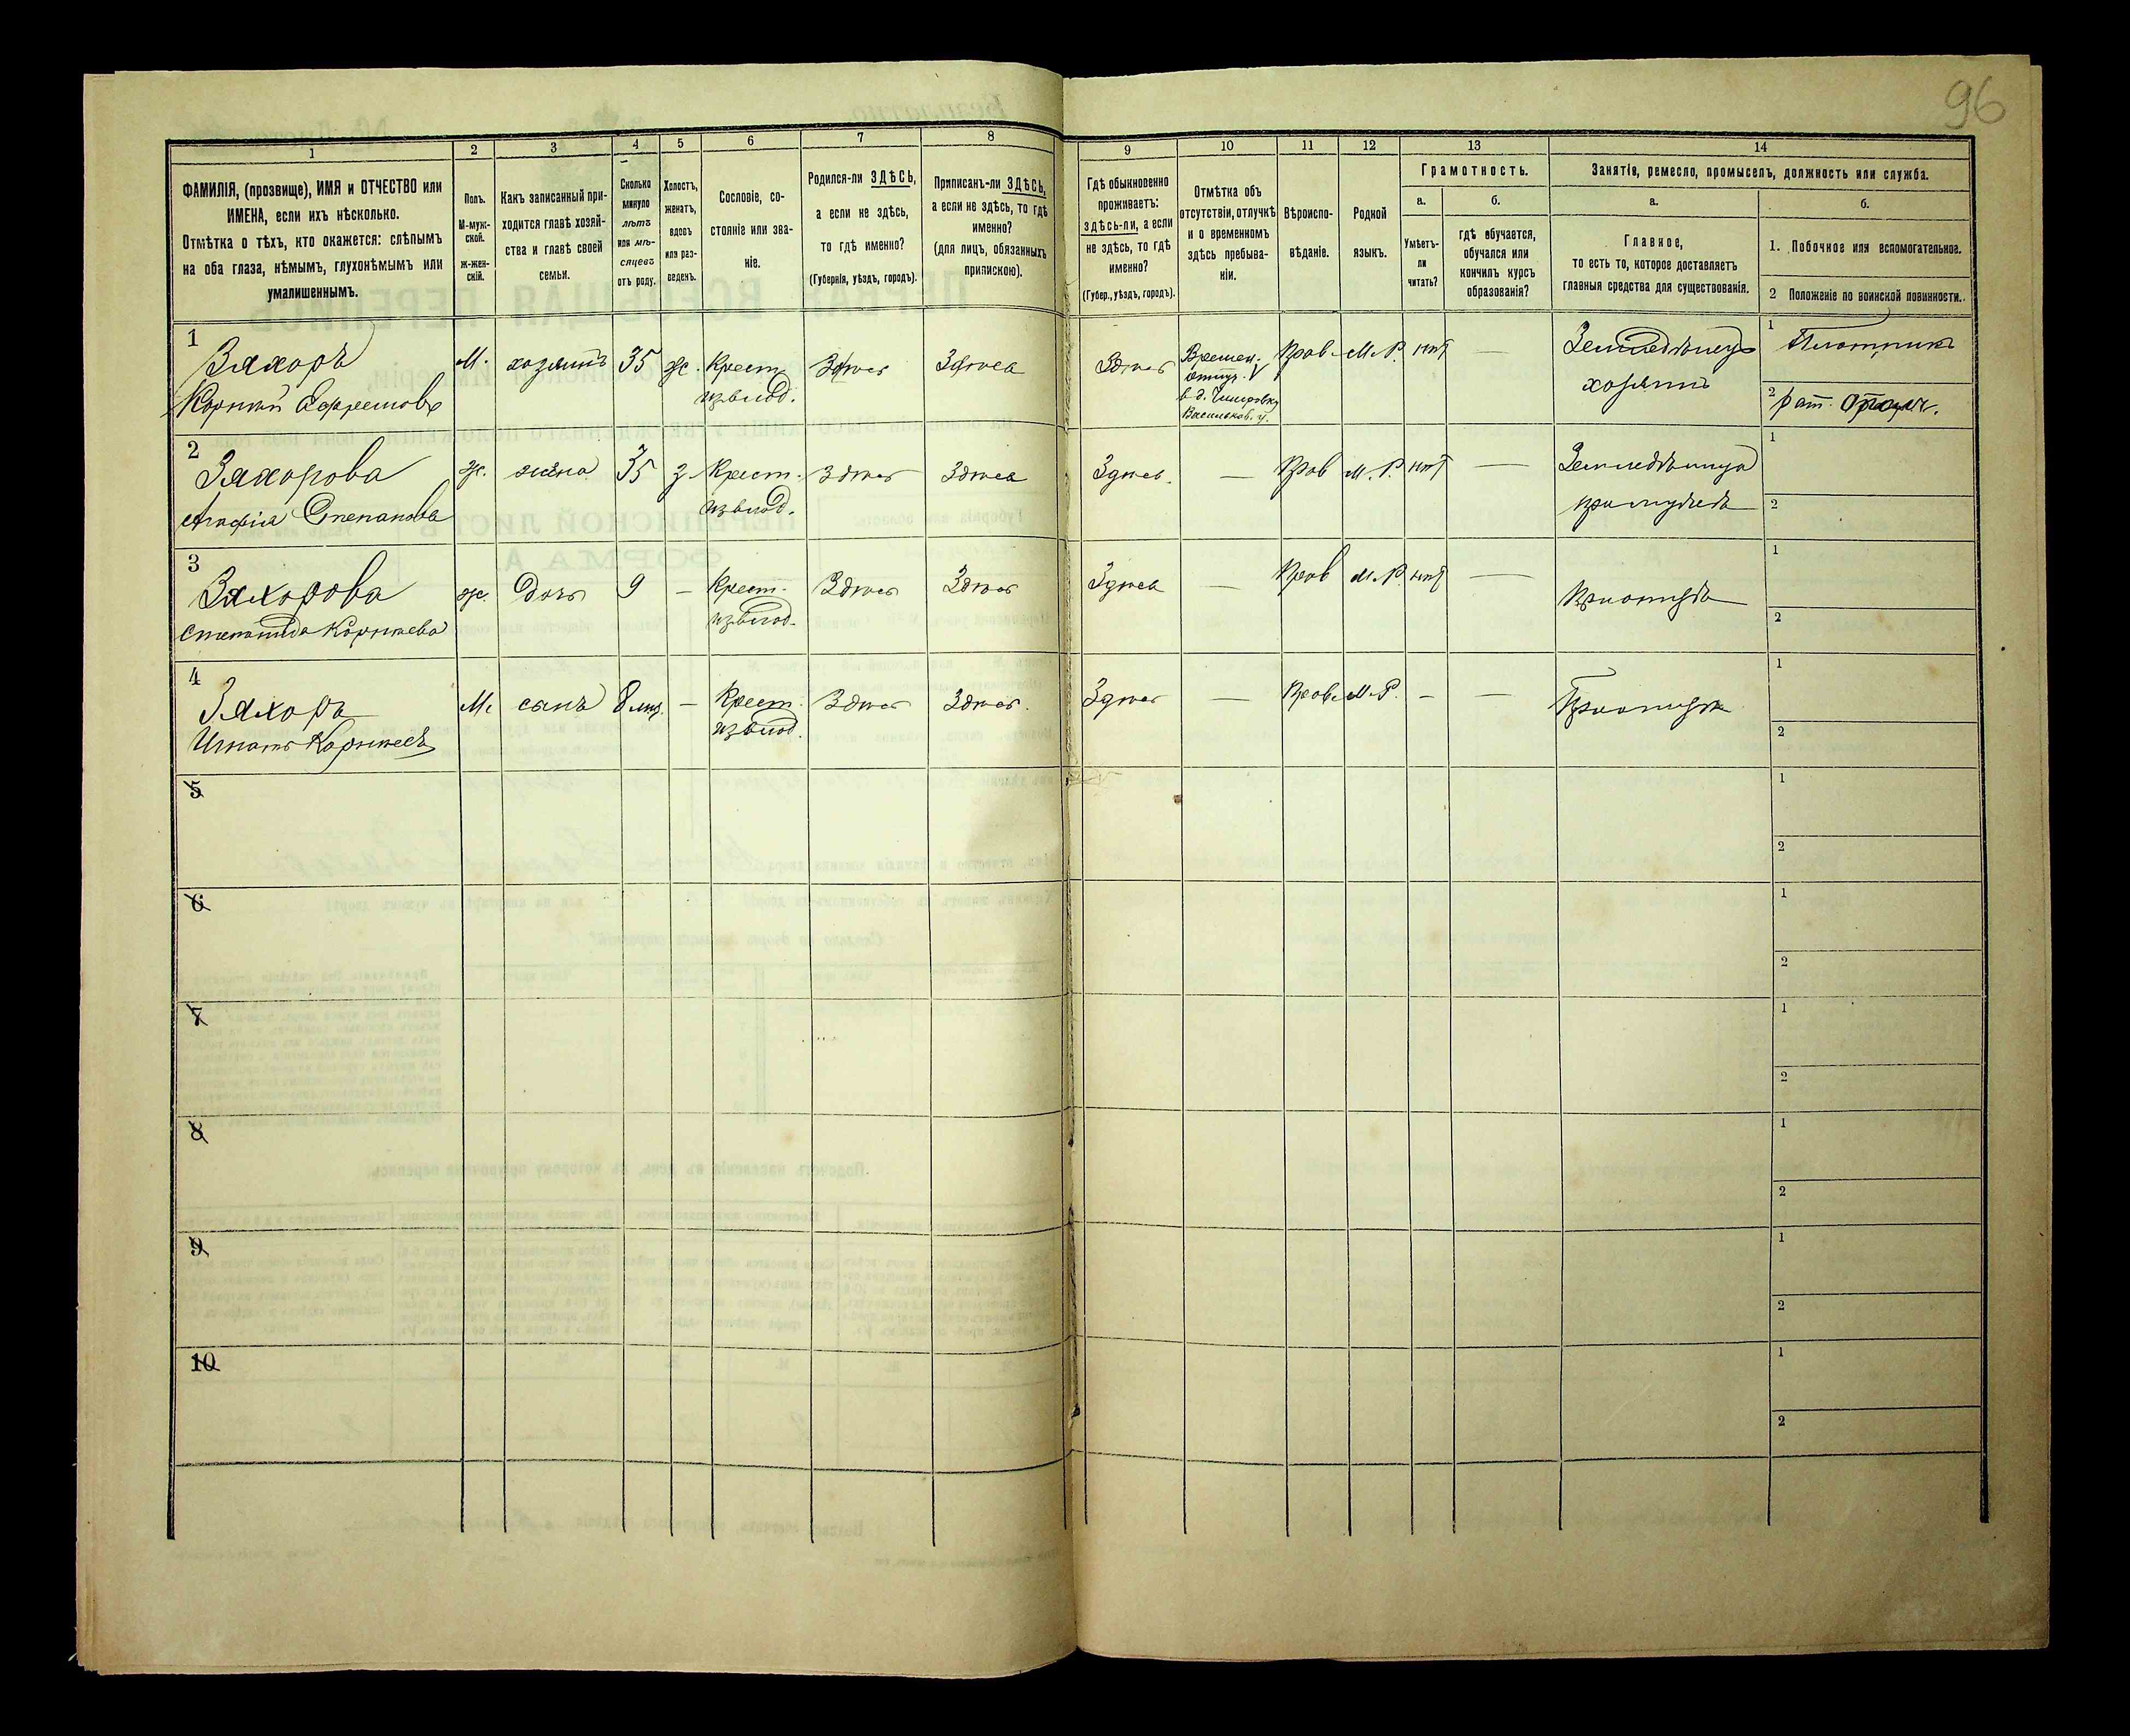 96
1
2
3
4
5
6
7
8
9
10
11
12
13
14
ФАМИЛІЯ, (прозвище), ИМЯ и ОТЧЕСТВО или
ИМЕНА, если ихъ нѣсколько.
Отмѣтка о тѣхъ, кто окажется: слѣпымъ
на оба глаза, нѣмымъ, глухонѣмымъ или
умалишеннымъ.
Полъ.
М-муж-
ской.
ж-жен-
скій.
Какъ записанный при-
ходится главѣ хозяй-
ства и главѣ своей
семьи.
Сколько
минуло
лѣтъ
или мѣ-
сяцевъ
отъ роду.
Холостъ,
женатъ,
вдовъ
или раз-
веденъ.
Сословіе, со-
стояніе или зва-
ніе.
Родился-ли ЗДѢСЬ,
а если не здѣсь,
то гдѣ именно?
(Губернія, уѣздъ, городъ).
Приписанъ-ли ЗДѢСЬ,
а если не здѣсь, то гдѣ
именно?
(для лицъ, обязанныхъ
припискою).
Гдѣ обыкновенно
проживаетъ:
здѣсь-ли, а если
не здѣсь, то гдѣ
именно?
(Губер., уѣздъ, городъ).
Отмѣтка объ
отсутствіи, отлучкѣ
и о временномъ
здѣсь пребыва-
ніи.
Вѣроиспо-
вѣданіе.
Родной
языкъ.
Грамотность.
а.
Умѣетъ-
ли
читать?
б.
гдѣ обучается,
обучался или
кончилъ курсъ
образованія?
Занятіе, ремесло, промыселъ, должность или служба.
а.
Главное,
то есть то, которое доставляетъ
главныя средства для существованія.
б.
1. Побочное или вспомогательное.
2 Положеніе по воинской повинности.
1
Зяхоръ
Корній Ефремовъ
М. хозяинъ 35 ж. Крест. Здѣсь Здѣсь
из влад.
Здѣсь Времен. Прав. М.Р. нѣт — Земледѣлецъ 1 Плотникъ
отлуч. V хозяинъ
Васильков. у. 2 рат. ополч.
2
Зяхорова
Агафія Степанова
ж. жена 35 з. Крест. Здѣсь Здѣсь
из влад.
Здѣсь. — Прав М.Р. нѣт — Земледѣлица 1
при мужѣ 2
3
Зяхорова
Степанида Корніева
ж. дочь 9 — Крест. Здѣсь Здѣсь
из влад.
Здѣсь — Прав М.Р. нѣт — При отцѣ 1
2
4
Зяхоръ
Игнатъ Корніевъ
М. сынъ 8 мц. — Крест. Здѣсь Здѣсь.
из влад.
Здѣсь — Прав. М.Р. — — При отцѣ 1
2
5 1
2
6 1
2
7 1
2
8 1
2
9 1
2
10 1
2